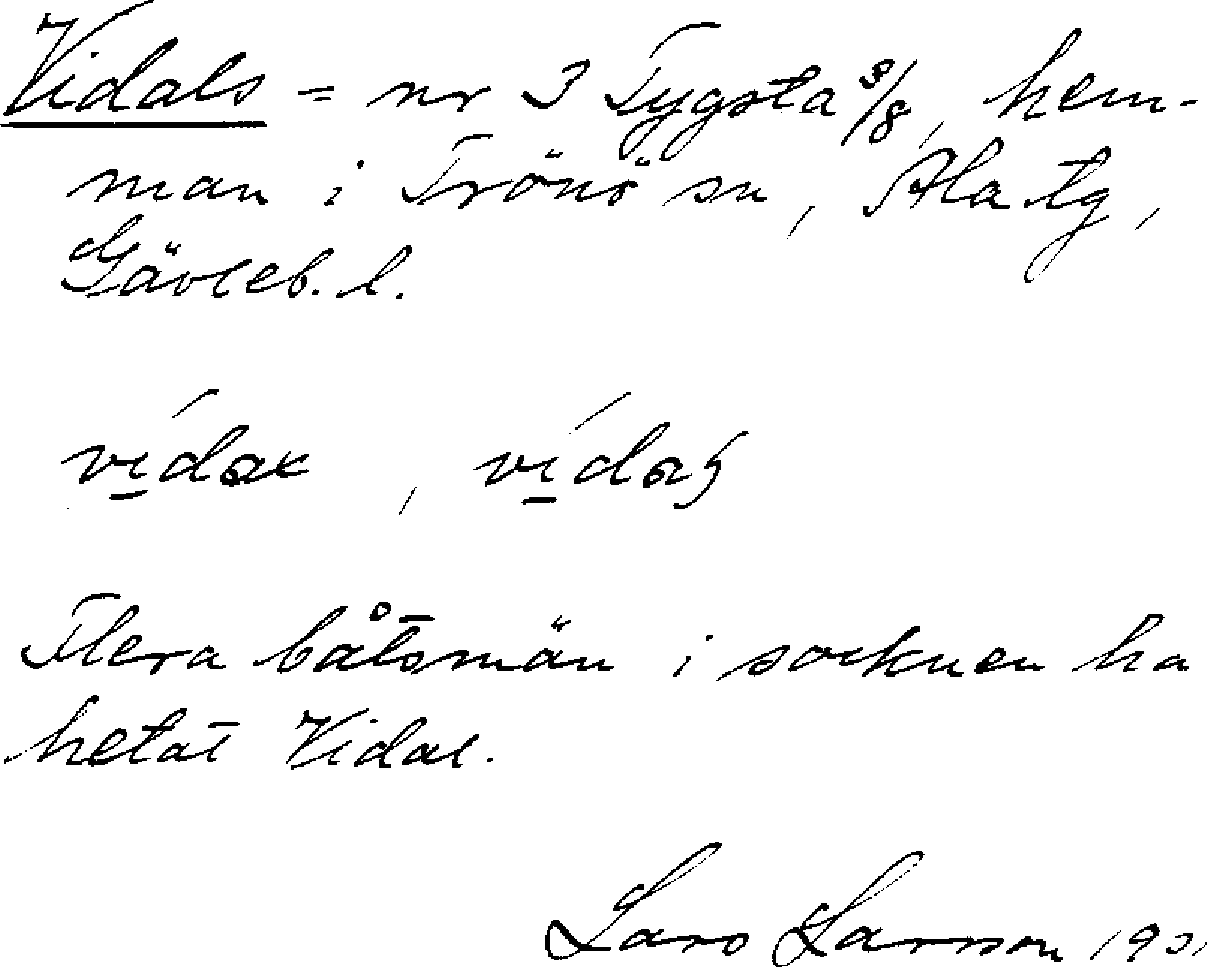 Vidals = nr 3 Tygsta 3/8, hem-
man i Trönö sn, Ala tg,
Gävleb. l.
Flera båtsmän i socknen ha
hetat Vidal.
Lars Larsson